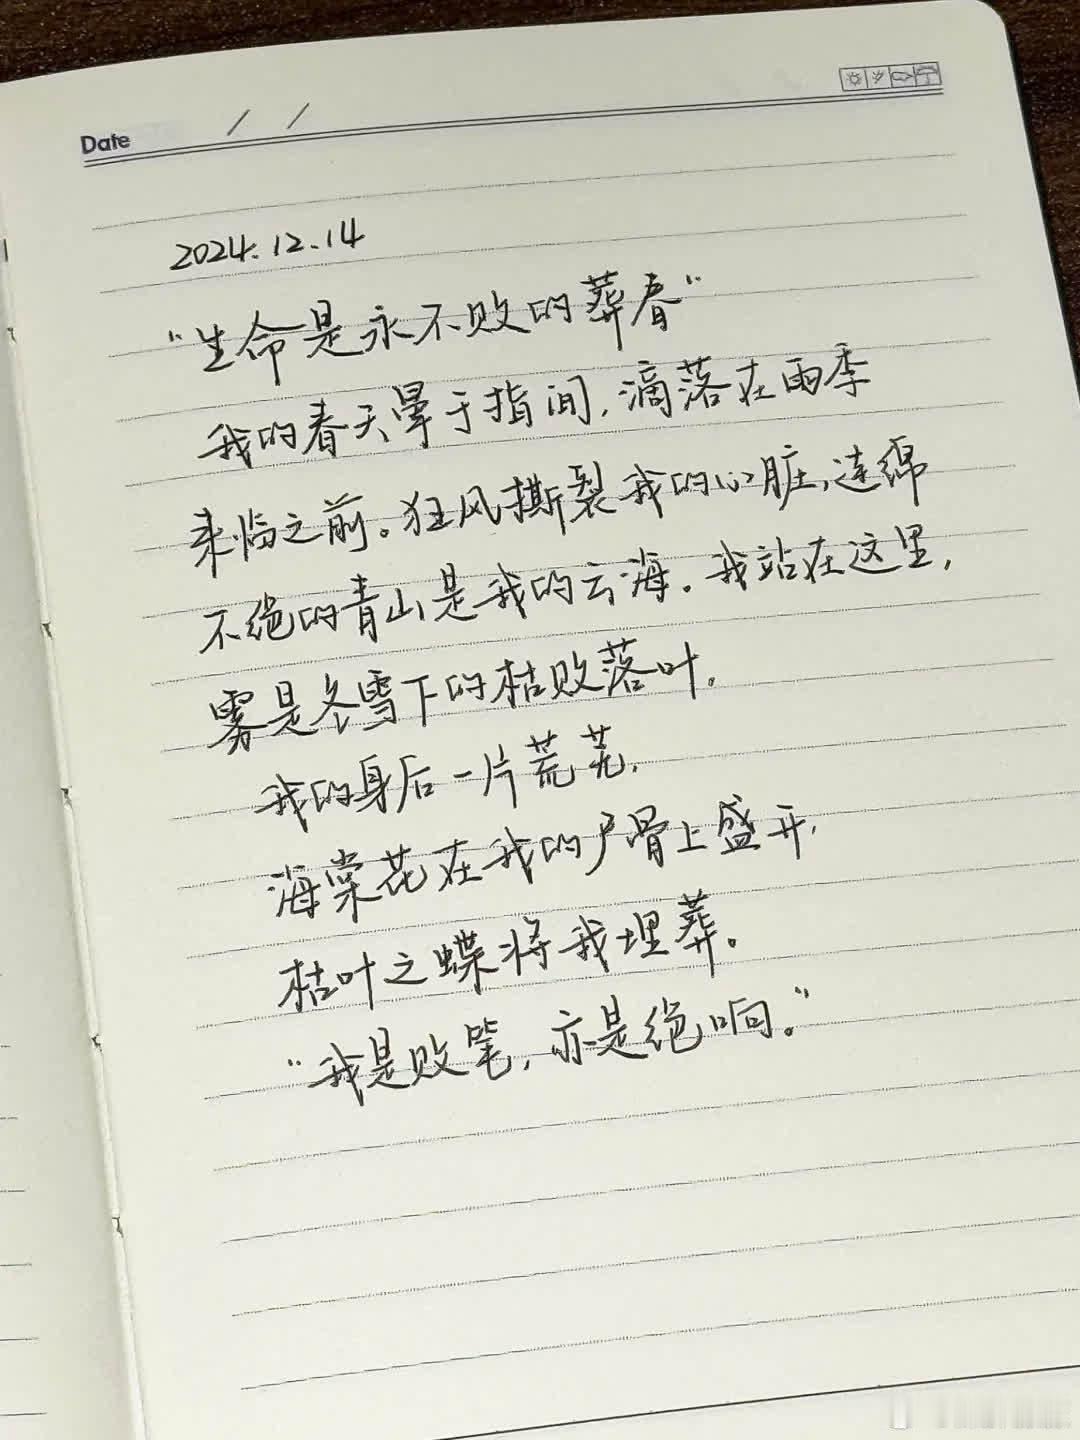 Date / /
2024.12.14
“生命是永不败的葬春”
我的春天晕于指间，滴落在雨季
来临之前。狂风撕裂我的心脏，连绵
不绝的青山是我的云海。我站在这里，
雾是冬雪下的枯败落叶。
我的身后一片荒芜，
海棠花在我的尸骨上盛开，
枯叶之蝶将我埋葬。
“我是败笔，亦是绝响。”